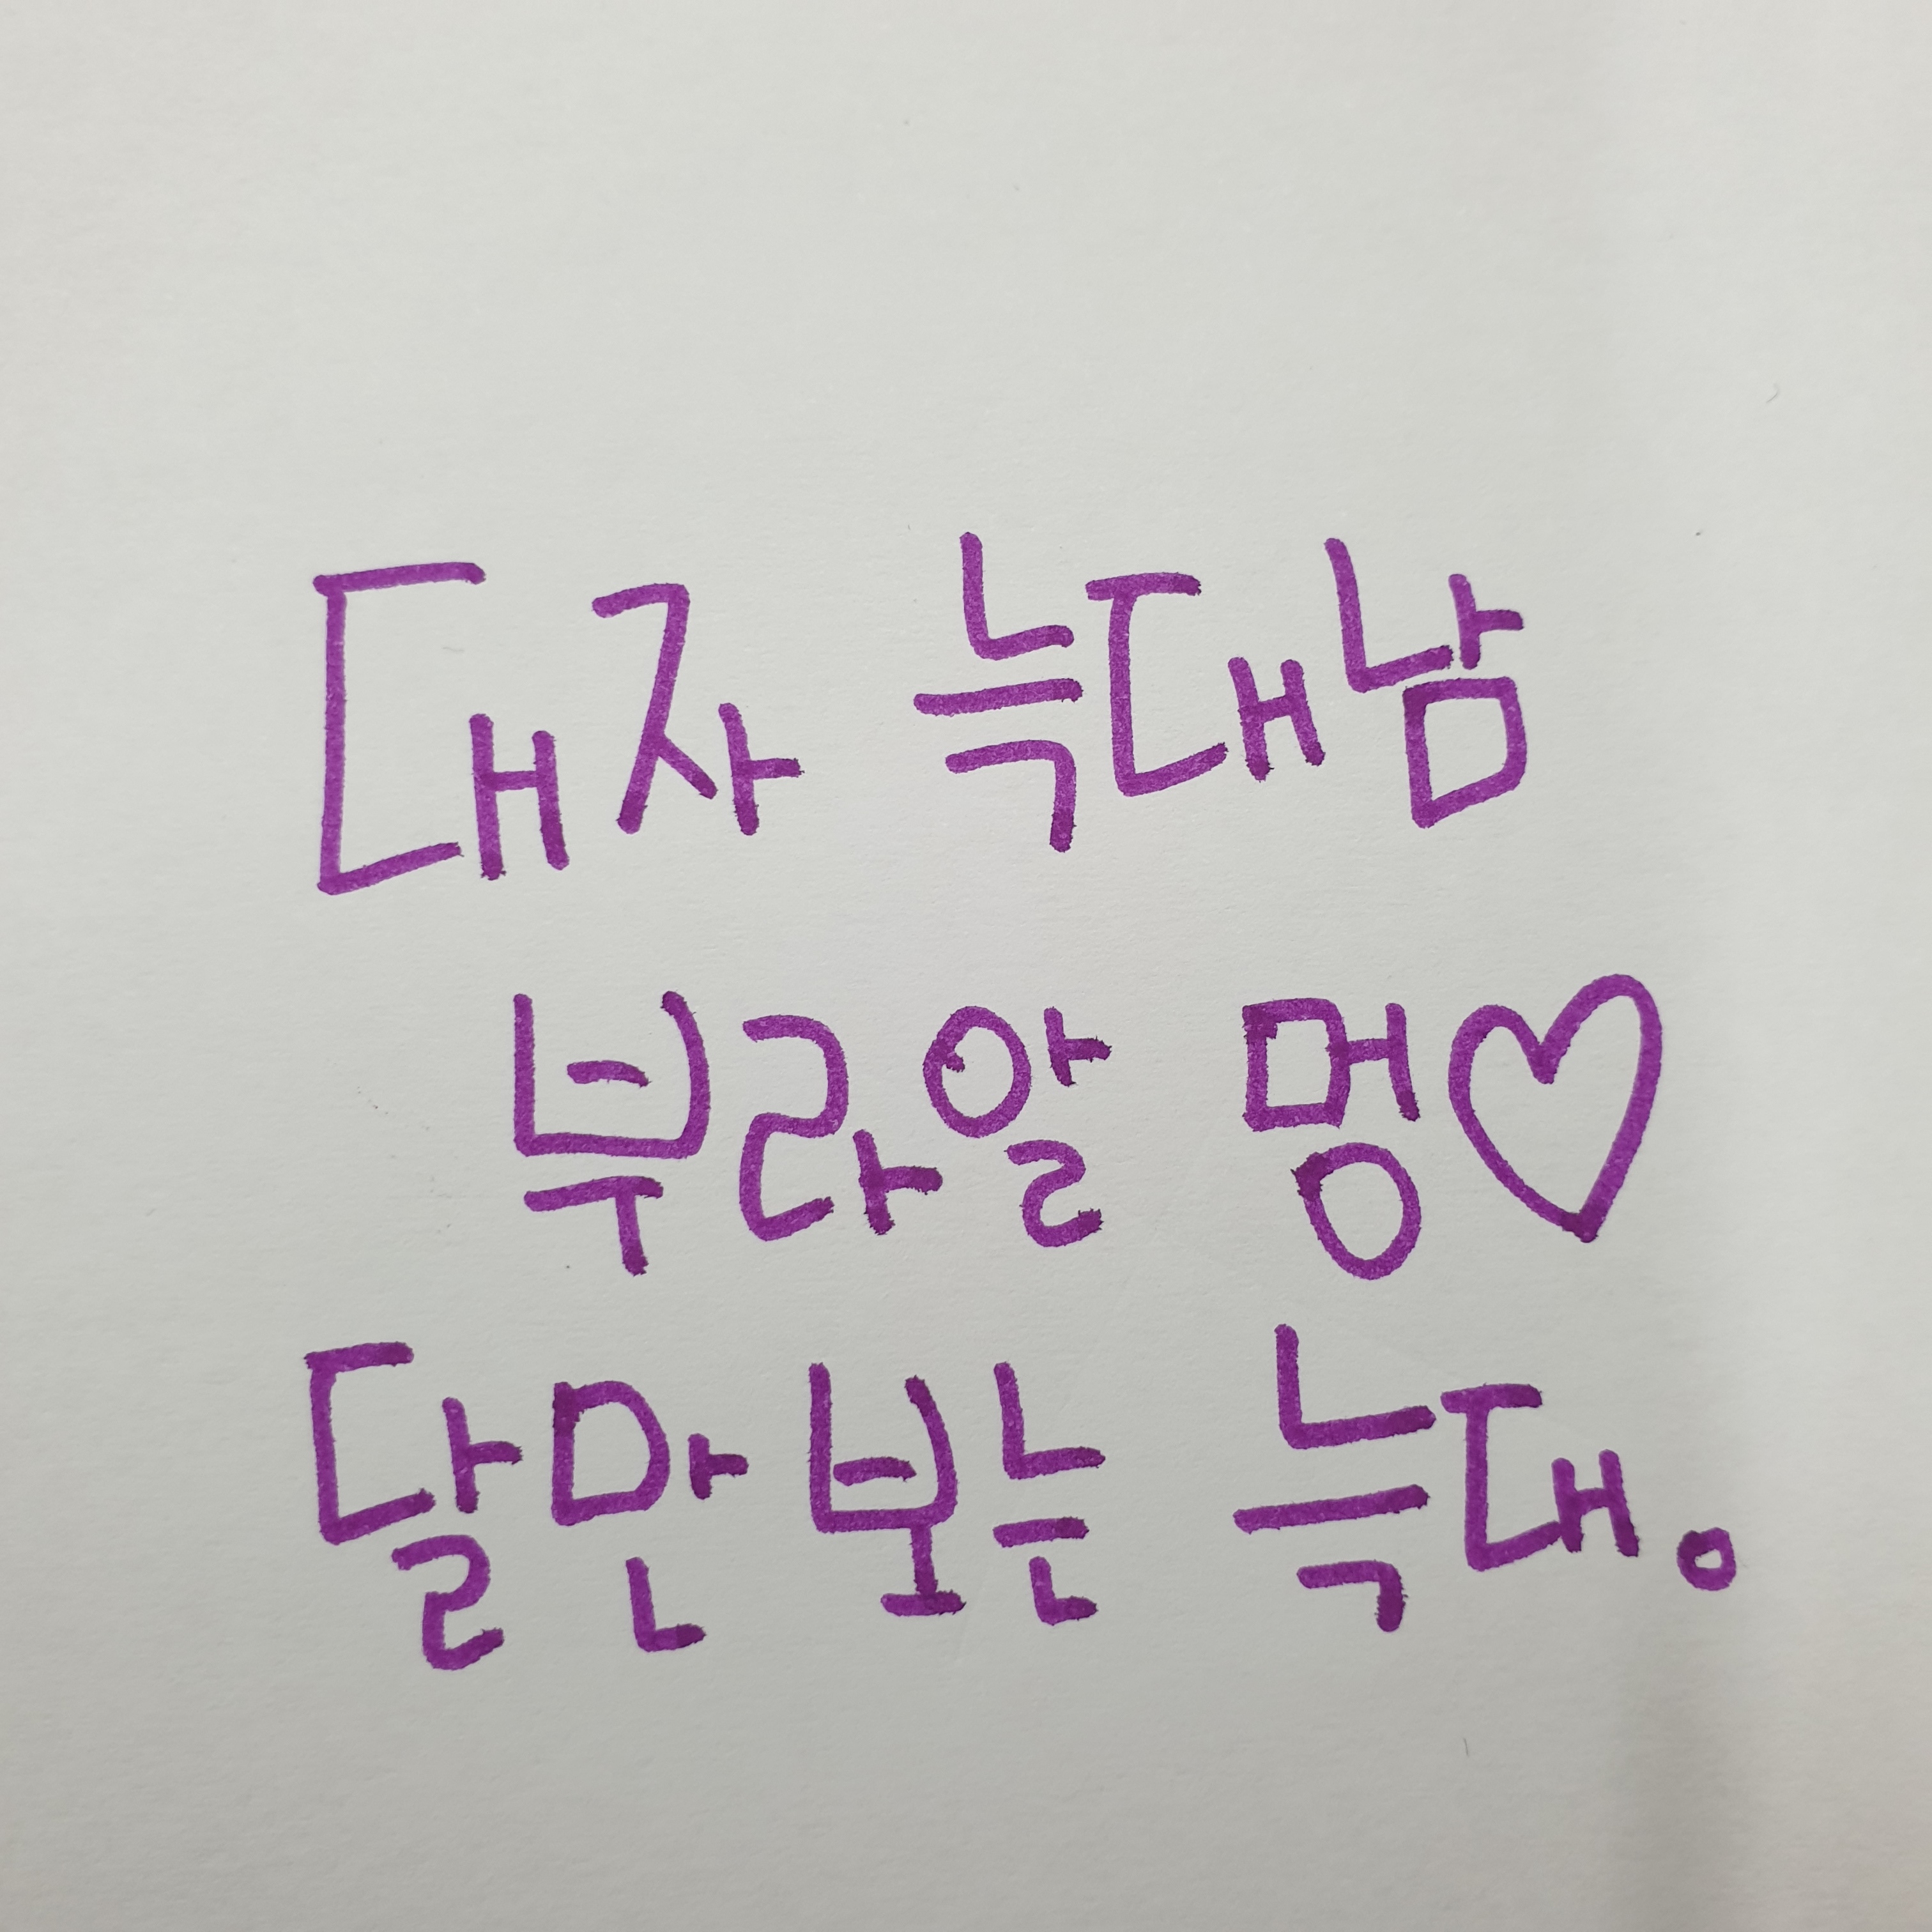 대자 늑대남
부라알 멍♡
달만보는 늑대.